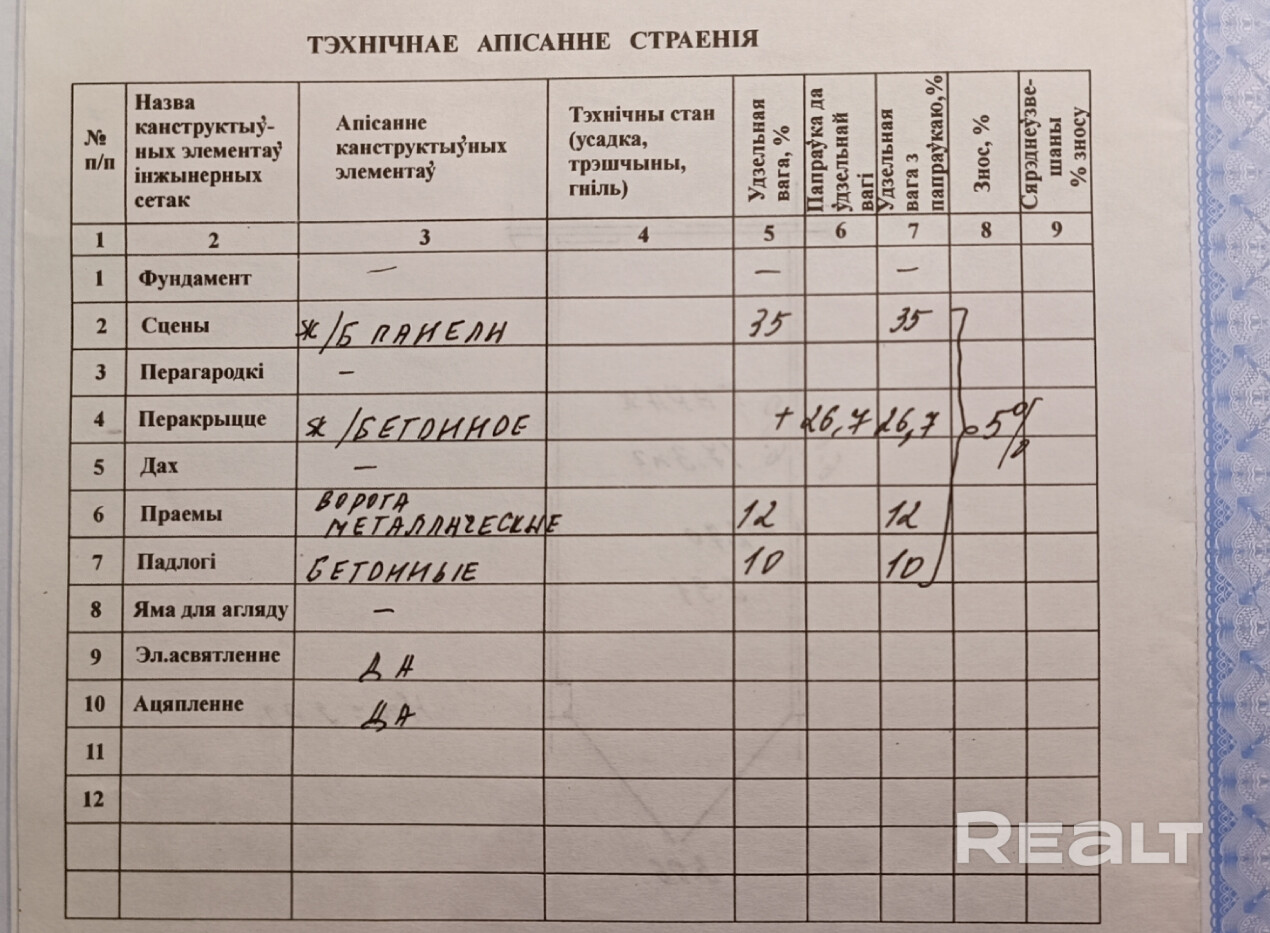 ТЭХНІЧНАЕ АПІСАННЕ СТРАЕНІЯ
№ п/п
Назва
канструктыў-
ных элементаў
інжынерных
сетак
Апісанне
канструктыўных
элементаў
Тэхнічны стан
(усадка,
трэшчыны,
гніль)
Удзельная
вага, %
Папраўка да
ўдзельнай
вагі
Удзельная
вага з
папраўкаю,%
Знос, %
Сярэднеўзве-
шаны
% зносу
1 2 3 4 5 6 7 8 9
1 Фундамент — — —
2 Сцены Ж/Б ПАНЕЛИ 35 35
3 Перагародкі —
4 Перакрыцце Ж/БЕТОННОЕ +26,7 26,7 5%
5 Дах —
6 Праемы ВОРОТА
МЕТАЛЛИЧЕСКИЕ 12 12
7 Падлогі БЕТОННЫЕ 10 10
8 Яма для агляду —
9 Эл.асвятленне ДА
10 Ацяпленне ДА
11
12
REALT